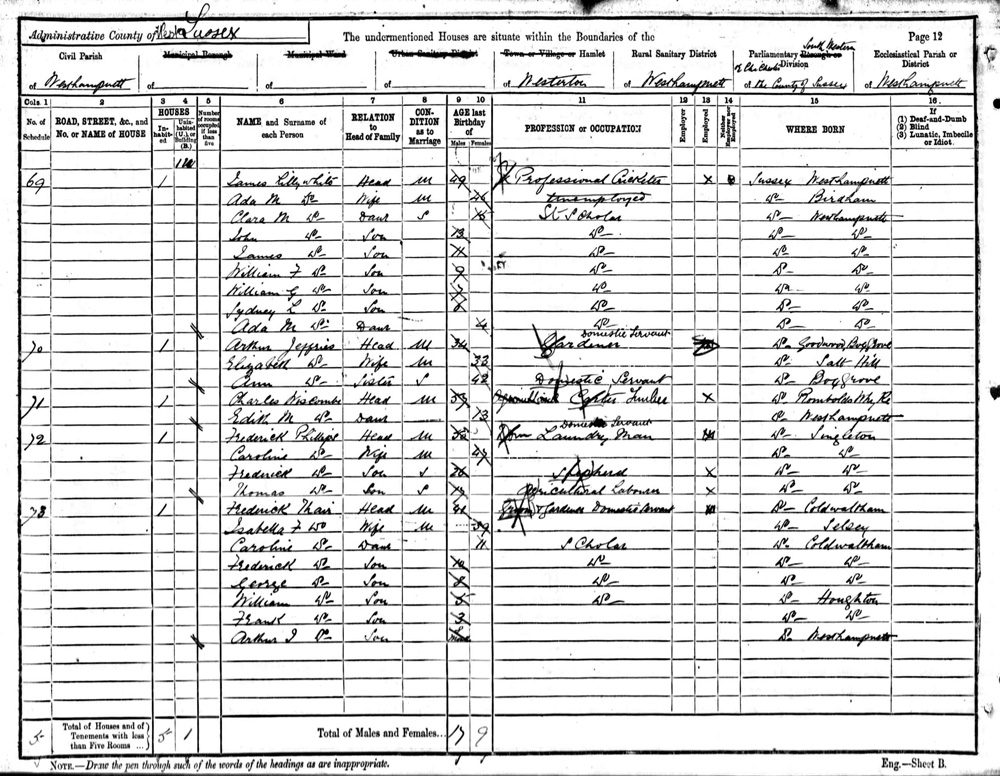 Administrative County of West Sussex
The undermentioned Houses are situate within the Boundaries of the
Page 12
Civil Parish
Municipal Borough
Municipal Ward
Urban Sanitary District
Town or Village or Hamlet
Rural Sanitary District
Parliamentary Borough or Division
Ecclesiastical Parish or District
of Westhampnett
of
of
of
of Westerton
of Westhampnett
South Western
of the County of Sussex
of Westhampnett
Cols. 1 2 3 4 5 6 7 8 9 10 11 12 13 14 15 16.
No. of Schedule
ROAD, STREET, &c., and No. or NAME of HOUSE
HOUSES
Inhabited
Uninhabited (U.), or Building (B.)
Number of rooms occupied if less than five
NAME and Surname of each Person
RELATION to Head of Family
CONDITION as to Marriage
AGE last Birthday of
Males
Females
PROFESSION or OCCUPATION
Employer
Employed
Neither Employer nor Employed
WHERE BORN
If
(1) Deaf-and-Dumb
(2) Blind
(3) Lunatic, Imbecile or Idiot.
1 u
69 1 James Lillywhite Head M 49 Professional Cricketer X Sussex Westhampnett
Ada M Do Wife M Do Birdham
Clara M Do Daur S Scholar Do Westhampnett
John Do Son 13 Do Do Do
James Do Son Do Do Do
William F Do Son 9 Do Do Do
William G Do Son 7 Do Do Do
Sydney L Do Son Do Do Do
Ada M Do Daur 4 Do Do Do
70 1 Arthur Jeffries Head M 34 Gardener Domestic Servant Do Goodwood, Boxgrove
Elizabeth Do Wife M 33 Do Salt Hill
Ann Do Sister S 42 Domestic Servant Do Boxgrove
71 1 Charles Wiscombe Head M Carter Timber X Do
Edith M Do Daur 13 Do Westhampnett
72 1 Frederick Phillips Head M Laundry Man Domestic Servant Do Singleton
Caroline Do Wife M 47 Do Do
Frederick Do Son S Shepherd X Do Do
Thomas Do Son S 17 Agricultural Labourer X Do Do
73 1 Frederick Thair Head M 41 Groom & Gardener Domestic Servant Do Coldwaltham
Isabella F Do Wife M 39 Do Selsey
Caroline Do Daur 11 Scholar Do Coldwaltham
Frederick Do Son Do Do Do
George Do Son 8 Do Do Do
William Do Son 5 Do Do Houghton
Frank Do Son 3 Do Do
Arthur J Do Son Do Westhampnett
5 Total of Houses and of Tenements with less than Five Rooms ... 5 1 Total of Males and Females... 17 9
NOTE.—Draw the pen through such of the words of the headings as are inappropriate.
Eng.—Sheet B.